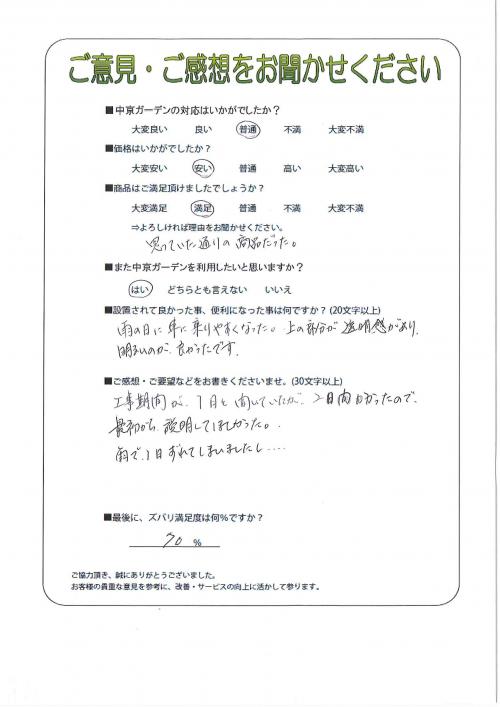 ご意見・ご感想をお聞かせください
■中京ガーデンの対応はいかがでしたか？
大変良い　良い　普通　不満　大変不満
■価格はいかがでしたか？
大変安い　安い　普通　高い　大変高い
■商品はご満足頂けましたでしょうか？
大変満足　満足　普通　不満　大変不満
⇒よろしければ理由をお聞かせください。
思っていた通りの商品だった。
■また中京ガーデンを利用したいと思いますか？
はい　どちらとも言えない　いいえ
■設置されて良かった事、便利になった事は何ですか？(20文字以上)
雨の日に車に乗りやすくなった。上の部分が透明感があり、
明るいのが良かったです。
■ご感想・ご要望などをお書きくださいませ。(30文字以上)
工事期間が、1日と聞いていたが、2日間かかったので、
最初から説明してほしかった。
雨で、1日ずれてしまいましたし....
■最後に、ズバリ満足度は何％ですか？
70 %
ご協力頂き、誠にありがとうございました。
お客様の貴重な意見を参考に、改善・サービスの向上に活かして参ります。